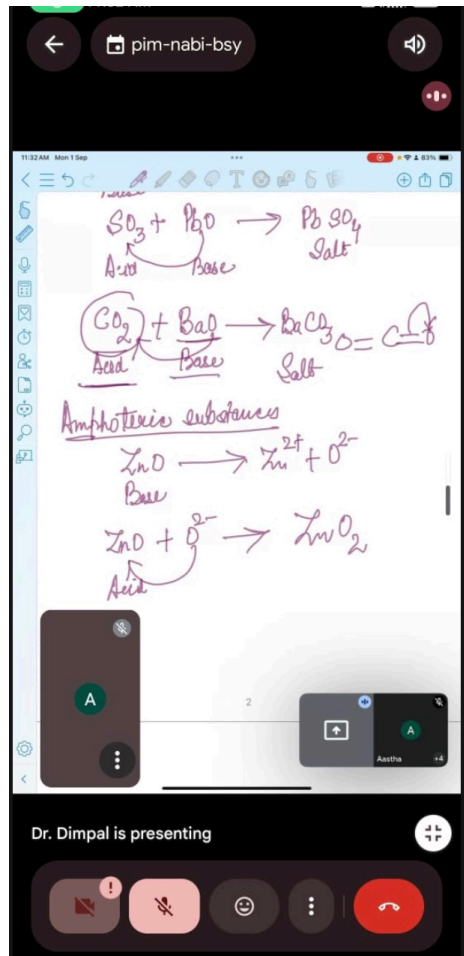 pim-nabi-bsy
11:32 AM Mon 1 Sep
83%
SO₃ + PbO → PbSO₄
Acid Base Salt
CO₂ + BaO → BaCO₃ O=C
Acid Base Salt
Amphoteric substances
ZnO → Zn²⁺ + O²⁻
Base
ZnO + O²⁻ → ZnO₂
Acid
A
2
A
Aastha +4
Dr. Dimpal is presenting